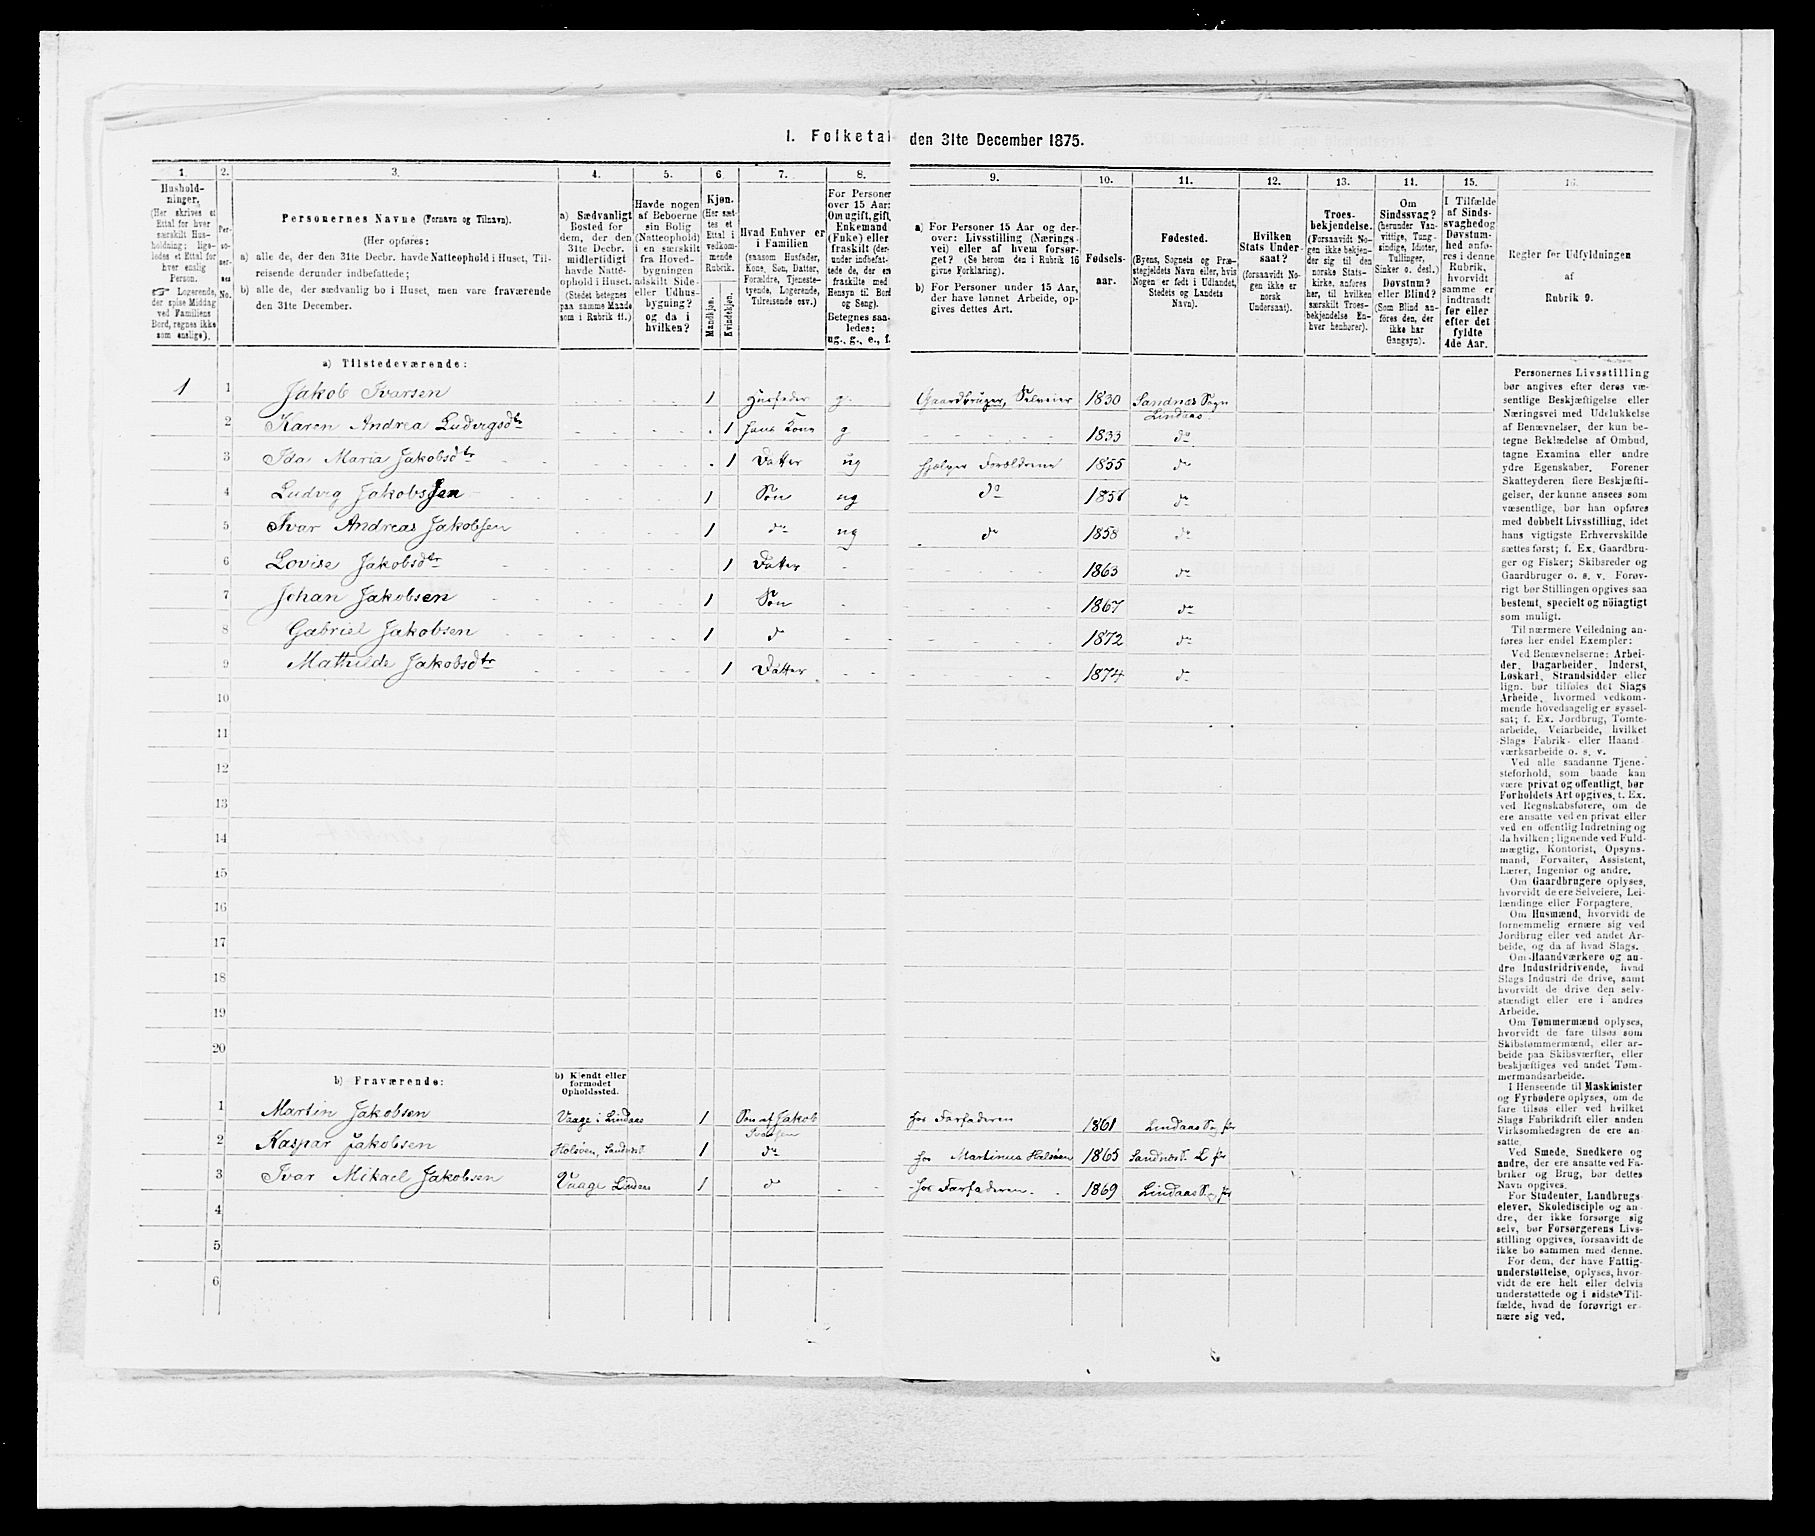 I. Folketal den 31te December 1875.
1. 2. 3. 4. 5. 6. 7. 8. 9. 10. 11. 12. 13. 14. 15. 16.
Hushold-
ninger.
(Her skrives et
Ettal for hver
særskilt Hus-
holdning; lige-
ledes et Ettal for
hver enslig
Person.
☞ Logerende,
der spise Middag
ved Familiens
Bord, regnes ikke
som enslige).
Per-
so-
ner-
nes
No.
Personernes Navne (Fornavn og Tilnavn).
(Her opføres:
a) alle de, der den 31te Decbr. havde Natteophold i Huset, Til-
reisende derunder indbefattede;
b) alle de, der sædvanlig bo i Huset, men vare fraværende
den 31te December.
a) Sædvanligt
Bosted for
dem, der den
31te Decbr.
midlertidigt
havde Natte-
ophold i Huset.
(Stedet betegnes
paa samme Maade
som i Rubrik 11.)
Havde nogen
af Beboerne
sin Bolig
(Natteophold)
i en særskilt
fra Hoved-
bygningen
adskilt Side-
eller Udhus-
bygning?
og da i
hvilken?
Kjøn.
(Her sæt-
tes et
Ettal i
vedkom-
mende
Rubrik.
Mandkjøn.
Kvindekjøn.
Hvad Enhver er
i Familien
(saasom Husfader,
Kone, Søn, Datter,
Forældre, Tjeneste-
tyende, Logerende,
Tilreisende osv.)
For Personer
over 15 Aar:
Om ugift, gift,
Enkemand
(Enke) eller
fraskilt (der-
under indbefat-
tede de, der ere
fraskilte med
Hensyn til Bord
og Seng).
Betegnes saa-
ledes:
ug., g., e., f.
a) For Personer 15 Aar og der-
over: Livsstilling (Nærings-
vei) eller af hvem forsør-
get? (Se herom den i Rubrik 16
givne Forklaring).
b) For Personer under 15 Aar,
der have lønnet Arbeide, op-
gives dettes Art.
Fødsels-
aar.
Fødested.
(Byens, Sognets og Præ-
stegjeldets Navn eller, hvis
Nogen er født i Udlandet,
Stedets og Landets
Navn).
Hvilken
Stats Under-
saat?
(forsaavidt No-
gen ikke er
norsk
Undersaat).
Troes-
bekjendelse.
(Forsaavidt No-
gen ikke bekjen-
der sig til den
norske Stats-
kirke, anføres
her, til hvilken
særskilt Troes-
bekjendelse En-
hver henhører).
Om
Sindssvag?
(herunder Van-
vittige, Tung-
sindige, Idioter,
Tullinger,
Sinker o. desl.)
Døvstum?
eller Blind?
(Som Blind an-
føres den, der
ikke har
Gangsyn).
I Tilfælde
af Sinds-
svaghed og
Døvstum-
hed anfø-
res i denne
Rubrik,
hvorvidt
samme er
indtraadt
før eller
efter det
fyldte
4de Aar.
Regler for Udfyldningen
af
Rubrik 9.
a) Tilstedeværende:
1 1 Jakob Ivarsen 1 Husfader g. Gaardbruger, Selveier 1830 Sandnæs Sogn
Lindaas
2 Karen Andrea Ludvigsdtr 1 hans Kone g 1833 do
3 Ida Maria Jakobsdtr 1 Datter ug hjelper Forældrene 1855 do
4 Ludvig Jakobsen 1 Søn ug do do
5 Ivar Andreas Jakobsen 1 do ug do 1858 do
6 Lovise Jakobsdtr 1 Datter 1863 do
7 Johan Jakobsen 1 Søn 1867 do
8 Gabriel Jakobsen 1 do 1872 do
9 Mathilde Jakobsdtr 1 Datter 1874 do
10
11
12
13
14
15
16
17
18
19
20
b) Fraværende:
b) Kjendt eller
formodet
Opholdssted.
1 Martin Jakobsen Vaage i Lindaas 1 Søn af Jakob
Ivarsen hos Farfaderen 1861 Lindaas
2 Kaspar Jakobsen 1 do hos Martinus 1865
3 Ivar Mikael Jakobsen Vaage Lindaas 1 do hos Farfaderen 1869 Lindaas
4
5
6
Personernes Livsstilling
bør angives efter deres væ-
sentlige Beskjæftigelse eller
Næringsvei med Udelukkelse
af Benævnelser, der kun be-
tegne Beklædelse af Ombud,
tagne Examina eller andre
ydre Egenskaber. Forener
Skatteyderen flere Beskjæfti-
gelser, der kunne ansees som
væsentlige, bør han opføres
med dobbelt Livsstilling, idet
hans vigtigste Erhvervskilde
sættes først; f. Ex. Gaardbru-
ger og Fisker; Skibsreder og
Gaardbruger o. s. v. Forøv-
rigt bør Stillingen opgives saa
bestemt, specielt og nöiagtigt
som muligt.
Til nærmere Veiledning an-
føres her endel Exempler:
Ved Benævnelserne: Arbei-
der, Dagarbeider, Inderst,
Løskarl, Strandsidder eller
lign. bør tilføies det Slags
Arbeide, hvormed vedkom-
mende hovedsagelig er syssel-
sat; f. Ex. Jordbrug, Tomte-
arbeide, Veiarbeide, hvilket
Slags Fabrik- eller Haand-
værksarbeide o. s. v.
Ved alle saadanne Tjene-
steforhold, som baade kan
være privat og offentligt, bør
Forholdets Art opgives, f. Ex.
ved Regnskabsførere, om de
ere ansatte ved en privat eller
ved en offentlig Indretning og
da hvilken; lignende ved Fuld-
mægtig, Kontorist, Opsyns-
mand, Forvalter, Assistent,
Lærer, Ingeniør og andre.
Om Gaardbrugere oplyses,
hvorvidt de ere Selveiere, Lei-
lændinge eller Forpagtere.
Om Husmænd, hvorvidt de
fornemmelig ernære sig ved
Jordbrug eller ved andet Ar-
beide, og da af hvad Slags.
Om Haandværkere og an-
dre Industridrivende, hvad
Slags Industri de drive, samt
hvorvidt de drive den selv-
stændigt eller ere i andres
Arbeide.
Om Tømmermænd oplyses,
hvorvidt de fare tilsøs som
Skibstømmermænd, eller ar-
beide paa Skibsværfter, eller
beskjæftiges ved andet Tøm-
mermandsarbeide.
I Henseende til Maskinister
og Fyrbødere oplyses, om de
fare tilsøs eller ved hvilket
Slags Fabrikdrift eller anden
Virksomhedsgren de ere an-
satte.
Ved Smede, Snedkere og
andre, der ere ansatte ved Fa-
briker og Brug, bør dettes
Navn opgives.
For Studenter, Landbrugs-
elever, Skoledisciple og an-
dre, der ikke forsørge sig
selv, bør Forsørgerens Livs-
stilling opgives, forsaavidt de
ikke bo sammen med denne.
For dem, der have Fattig-
understøttelse, oplyses, hvor-
vidt de ere helt eller delvis
understøttede og i sidste Til-
fælde, hvad de forøvrigt er-
nære sig ved.